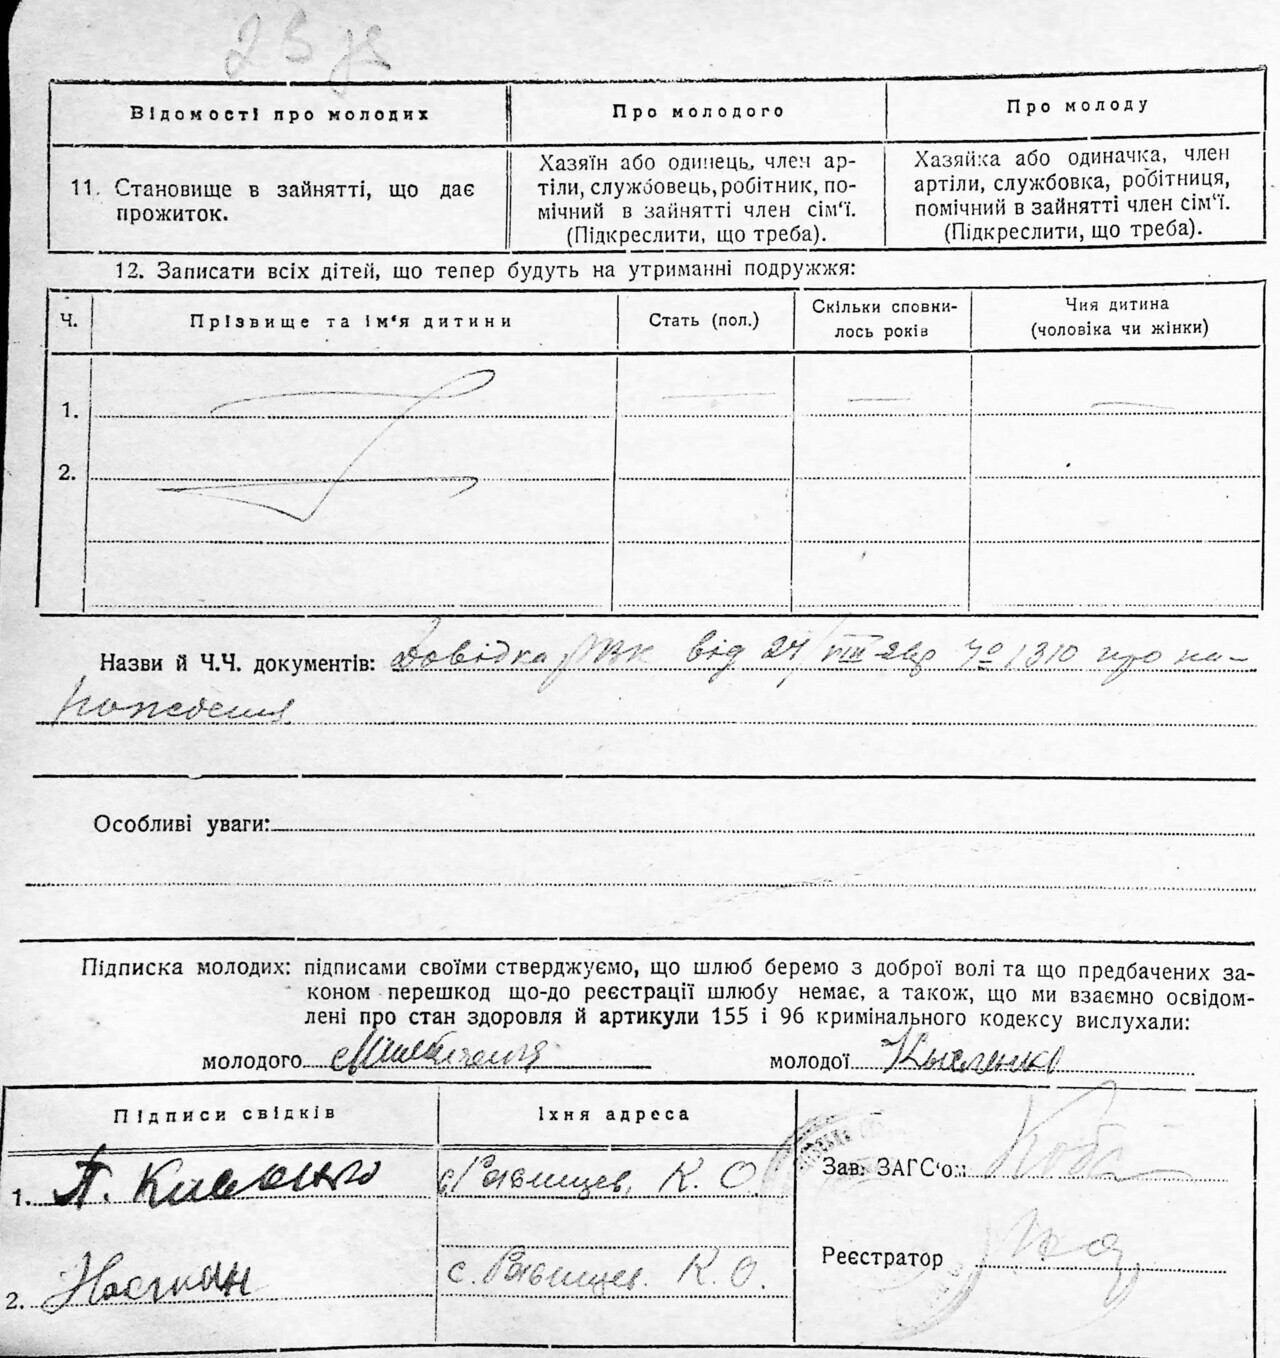 Відомості про молодих
Про молодого
Про молоду
11. Становище в зайнятті, що дає
прожиток.
Хазяїн або одинець, член ар-
тілі, службовець, робітник, по-
мічний в зайнятті член сім‘ї.
(Підкреслити, що треба).
Хазяйка або одиначка, член
артілі, службовка, робітниця,
помічний в зайнятті член сім‘ї.
(Підкреслити, що треба).
12. Записати всіх дітей, що тепер будуть на утриманні подружжя:
Ч.
Прізвище та ім‘я дитини
Стать (пол.)
Скільки сповни-
лось років
Чия дитина
(чоловіка чи жінки)
1.
2.
Назви й Ч.Ч. документів: Довідка РВК від 24/VIII 1310 про на-
рождения
Особливі уваги:
Підписка молодих: підписами своїми стверджуємо, що шлюб беремо з доброї волі та що предбачених за-
коном перешкод що-до реєстрації шлюбу немає, а також, що ми взаємно освідом-
лені про стан здоровля й артикули 155 і 96 кримінального кодексу вислухали:
молодого
молодої Кысленко
Підписи свідків
Їхня адреса
1.
К. О.
2.
с. К. О.
Зав. ЗАГС‘ом
Реєстратор